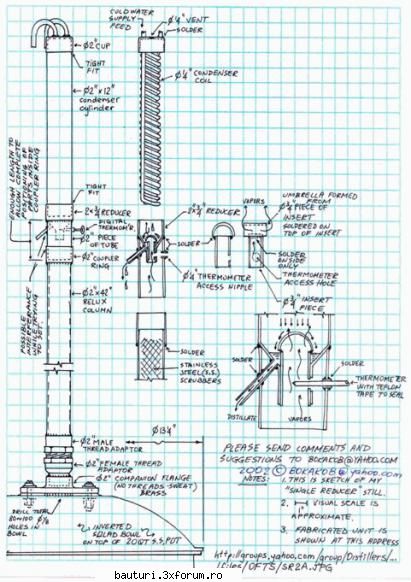 COLD WATER
SUPPLY
FEED
Ø¼" VENT
SOLDER
Ø2" CUP
TIGHT
FIT
Ø¼" CONDENSER
COIL
Ø2" x 12"
condenser
cylinder
ENOUGH LENGTH TO
ALLOW COMPLETE
POSITIONING OF
PARTS INSIDE
COUPLER RING
TIGHT
FIT
2 x ¾ REDUCER
DIGITAL
THERMOM'R.
Ø2" PIECE
OF TUBE
Ø2" COUPLER
RING
POSSIBLE
INTERFERANCE
WHILE TRYING
TO SET.
Ø2" x 42"
RELUX
COLUMN
2 x ¾" REDUCER
SOLDER
Ø¼" THERMOMETER
ACCESS NIPPLE
VAPORS
UMBRELLA FORMED
FROM
Ø¾" PIECE OF
INSERT
SOLDERED ON
TOP OF INSERT
SOLDER
ON SIDE
ONLY
THERMOMETER
ACCESS HOLE
Ø¾" INSERT
PIECE
SOLDER
STAINLESS
STEEL (S.S.)
SCRUBBERS
SOLDER
SOLDER
THERMOMETER
WITH TEFLON
TAPE TO SEAL
DISTILLATE
VAPORS
Ø13¼"
Ø2" MALE
THREAD ADAPTOR
Ø2" FEMALE THREAD
ADAPTOR
Ø2" COMPANION FLANGE
(NO THREADS-SWEAT)
BRASS
DRILL TOTAL
HOLES IN
BOWL
INVERTED
SALAD BOWL
ON TOP OF 20QT S.S. POT
PLEASE SEND COMMENTS AND
SUGGESTIONS TO BOKAKOB@YAHOO.COM
2002 © BOKAKOB@yahoo.com
NOTES: 1. THIS IS SKETCH OF MY
"SINGLE REDUCER" STILL.
2. VISUAL SCALE IS
APPROXIMATE 1".
3. FABRICATED UNIT IS
SHOWN AT THIS ADDRESS
http://groups.yahoo.com/group/Distillers/...
bauturi.3xforum.ro